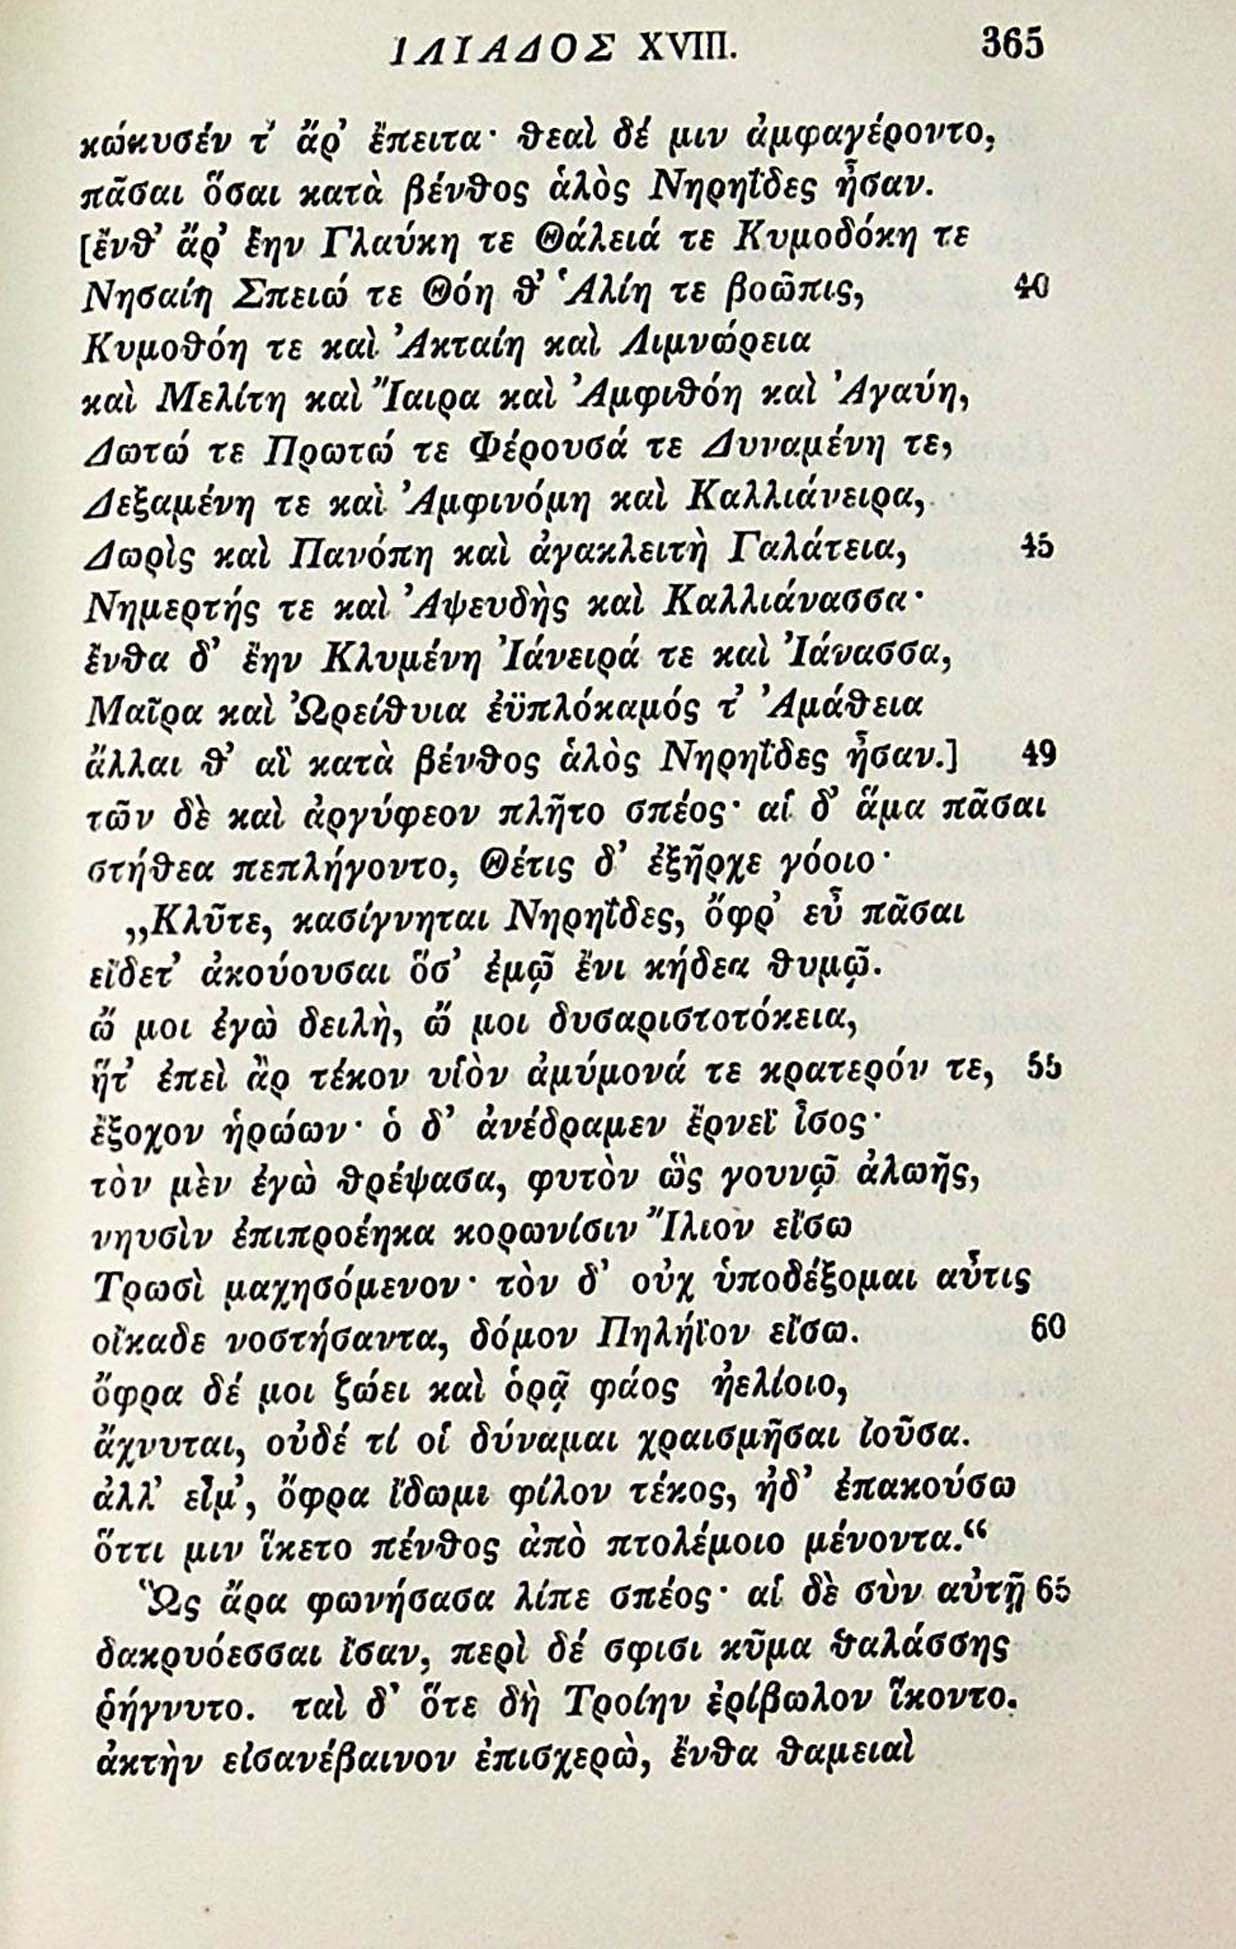 ΙΛΙΑΔΟΣ XVIII. 365
κώκυσέν τ’ ἄρ’ ἔπειτα· θεαὶ δέ μιν ἀμφαγέροντο,
πᾶσαι ὅσαι κατὰ βένθος ἁλὸς Νηρηΐδες ἦσαν.
[ἔνθ’ ἄρ’ ἔην Γλαύκη τε Θάλειά τε Κυμοδόκη τε
Νησαίη Σπειώ τε Θόη θ’ Ἁλίη τε βοῶπις, 40
Κυμοθόη τε καὶ Ἀκταίη καὶ Λιμνώρεια
καὶ Μελίτη καὶ Ἴαιρα καὶ Ἀμφιθόη καὶ Ἀγαύη,
Δωτώ τε Πρωτώ τε Φέρουσά τε Δυναμένη τε,
Δεξαμένη τε καὶ Ἀμφινόμη καὶ Καλλιάνειρα,
Δωρὶς καὶ Πανόπη καὶ ἀγακλειτὴ Γαλάτεια, 45
Νημερτής τε καὶ Ἀψευδὴς καὶ Καλλιάνασσα·
ἔνθα δ’ ἔην Κλυμένη Ἰάνειρά τε καὶ Ἰάνασσα,
Μαῖρα καὶ Ὠρείθυια ἐϋπλόκαμός τ’ Ἀμάθεια
ἄλλαι θ’ αἳ κατὰ βένθος ἁλὸς Νηρηΐδες ἦσαν.] 49
τῶν δὲ καὶ ἀργύφεον πλῆτο σπέος· αἱ δ’ ἅμα πᾶσαι
στήθεα πεπλήγοντο, Θέτις δ’ ἐξῆρχε γόοιο·
„Κλῦτε, κασίγνηται Νηρηΐδες, ὄφρ’ εὖ πᾶσαι
εἴδετ’ ἀκούουσαι ὅσ’ ἐμῷ ἔνι κήδεα θυμῷ.
ὤ μοι ἐγὼ δειλὴ, ὤ μοι δυσαριστοτόκεια,
ἥτ’ ἐπεὶ ἂρ τέκον υἱὸν ἀμύμονά τε κρατερόν τε, 55
ἔξοχον ἡρώων· ὁ δ’ ἀνέδραμεν ἔρνεϊ ἶσος·
τὸν μὲν ἐγὼ θρέψασα, φυτὸν ὣς γουνῷ ἀλωῆς,
νηυσὶν ἐπιπροέηκα κορωνίσιν Ἴλιον εἴσω
Τρωσὶ μαχησόμενον· τὸν δ’ οὐχ ὑποδέξομαι αὖτις
οἴκαδε νοστήσαντα, δόμον Πηλήϊον εἴσω. 60
ὄφρα δέ μοι ζώει καὶ ὁρᾷ φάος ἠελίοιο,
ἄχνυται, οὐδέ τί οἱ δύναμαι χραισμῆσαι ἰοῦσα.
ἀλλ’ εἶμ’, ὄφρα ἴδωμι φίλον τέκος, ἠδ’ ἐπακούσω
ὅττι μιν ἵκετο πένθος ἀπὸ πτολέμοιο μένοντα.“
Ὣς ἄρα φωνήσασα λίπε σπέος· αἱ δὲ σὺν αὐτῇ 65
δακρυόεσσαι ἴσαν, περὶ δέ σφισι κῦμα θαλάσσης
ῥήγνυτο. ταὶ δ’ ὅτε δὴ Τροίην ἐρίβωλον ἵκοντο,
ἀκτὴν εἰσανέβαινον ἐπισχερὼ, ἔνθα θαμειαὶ